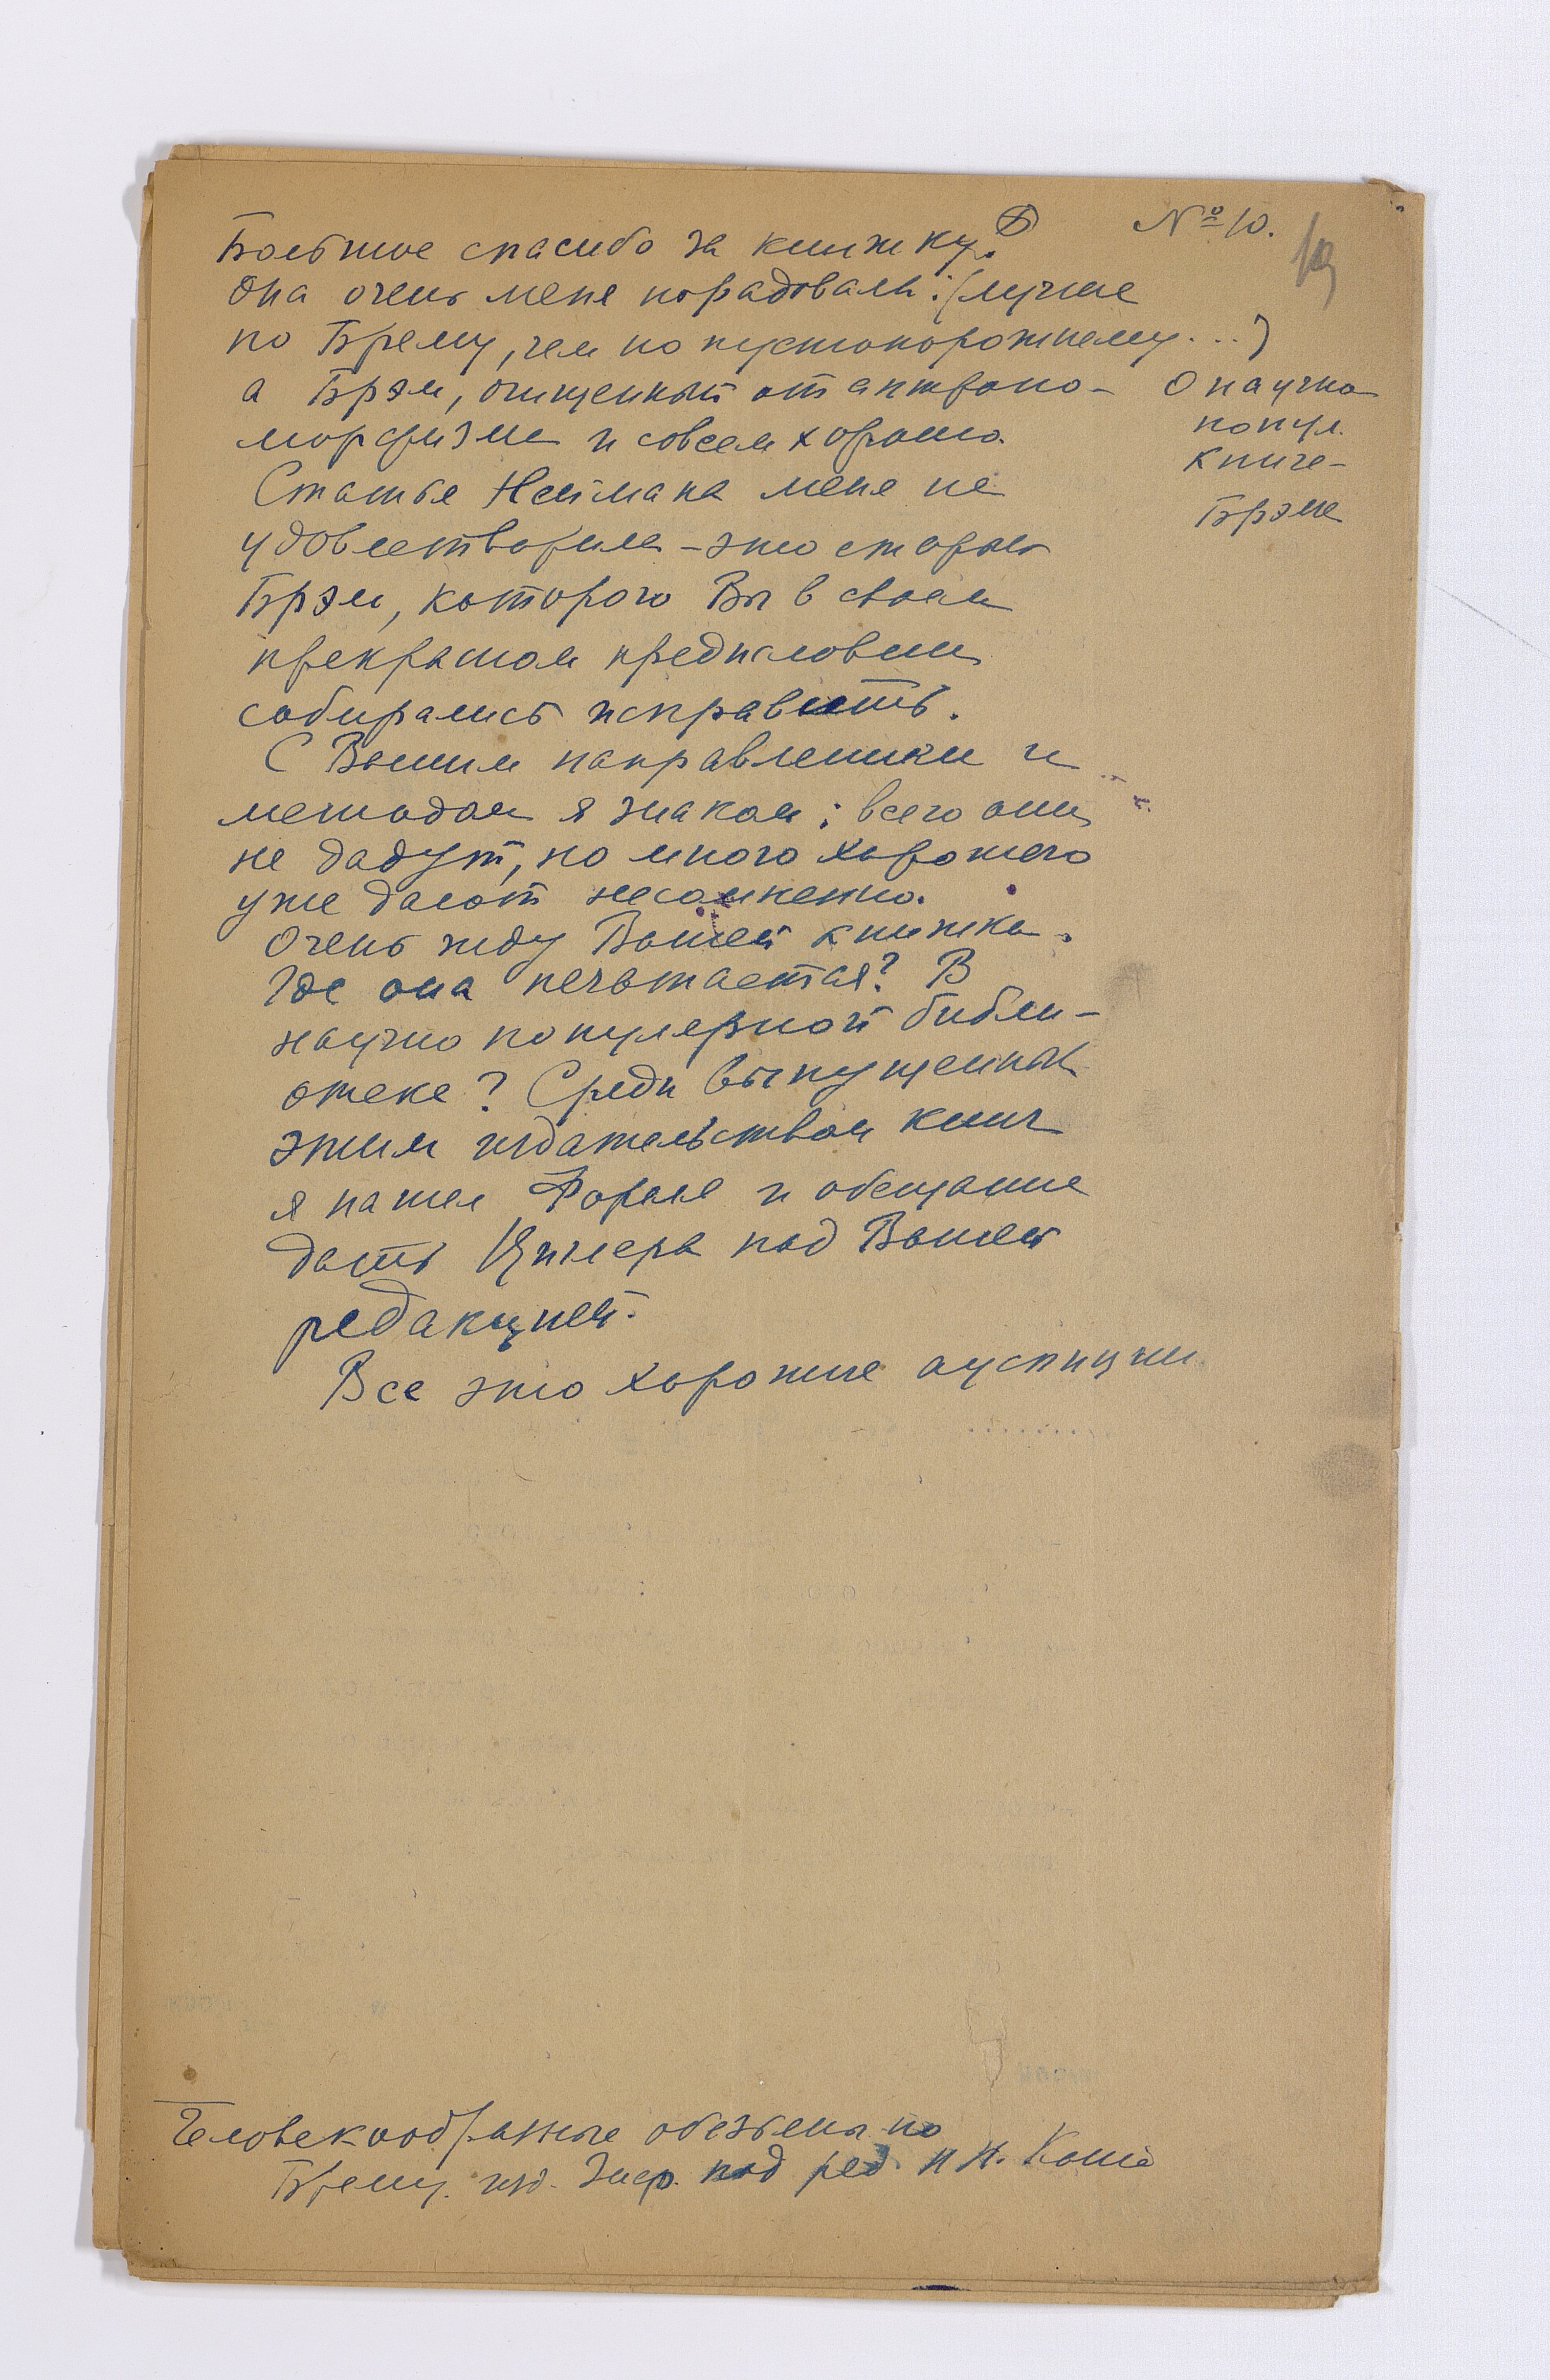 № 10.
19
Большое спасибо за книжку.
Она очень меня порадовала: (лучше
по Брему, чем по пустопорожнему...)
а Брэм, очищенный от антропо-
морфизма и совсем хорошо.
О научно
попул.
книге-
Брэма
Статья Неймана меня не
удовлетворила - это старый
Брэм, которого Вы в своем
прекрасном предисловии
собирались исправить.
С Вашим направлением и
методом я знаком; всего они
не дадут, но много хорошего
уже дают несомненно.
Очень жду Вашей книжки.
Где она печатается? В
научно популярной библи-
отеке? Среди выпущенных
этим издательством книг
я нашел Фореля и обещание
дать Циглера под Вашей
редакцией.
Все это хорошие ауспиции
........
Человекообразные обезьяны по
Брему. изд. под ред. Н Н. Котс